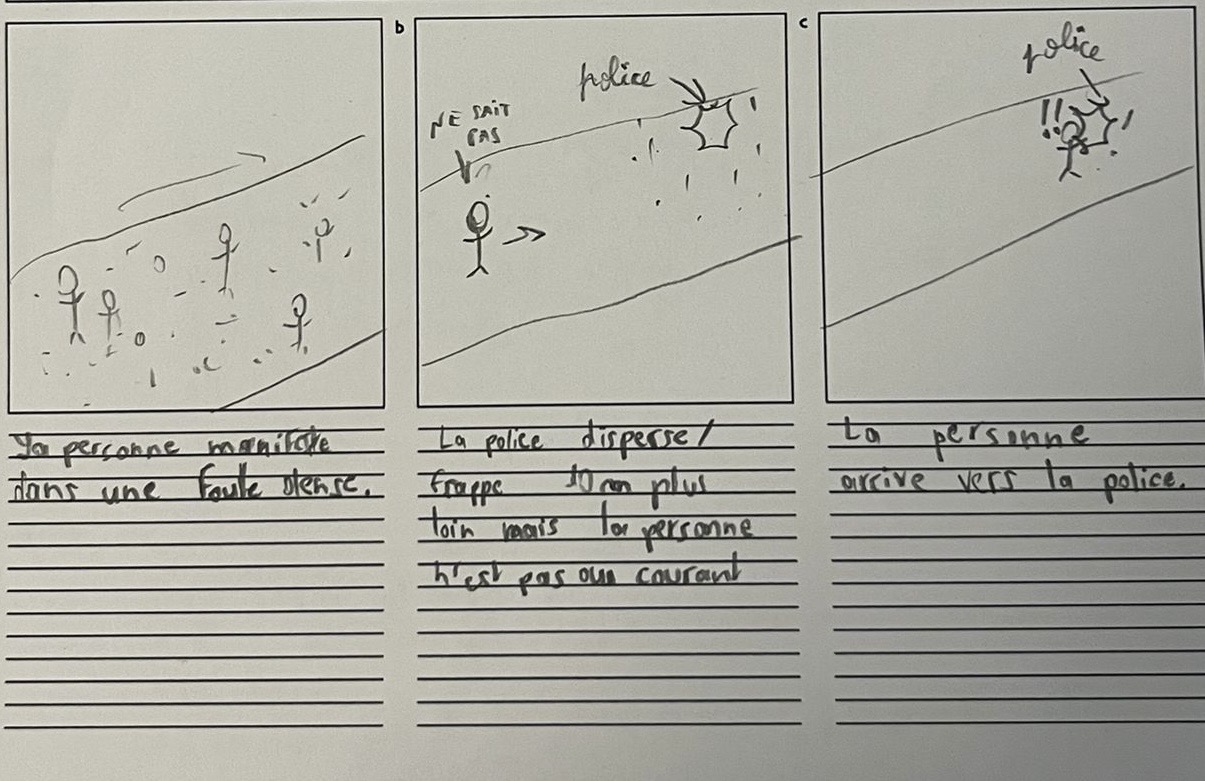 b
c
police
NE SAIT
PAS
police
!!
La personne manifeste
dans une foule dense.
La police disperse/
frappe 10m plus
loin mais la personne
n'est pas au courant
La personne
arrive vers la police.